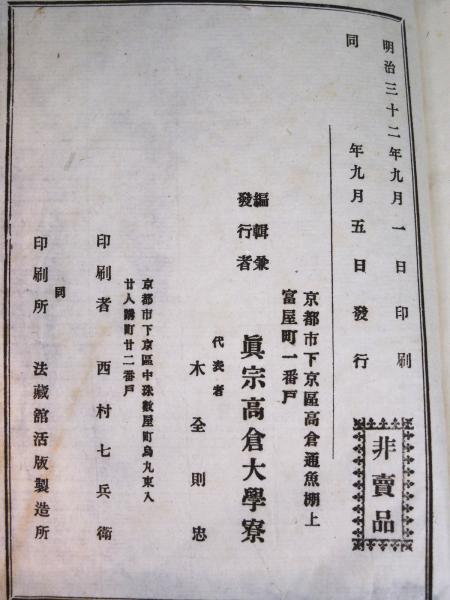 明治三十二年九月一日印刷
同年九月五日發行
非賣品
京都市下京區高倉通魚棚上
富屋町一番戸
編輯兼
發行者
眞宗高倉大學寮
代表者
木全則忠
京都市下京區中珠數屋町烏丸東入
廿人講町廿二番戸
印刷者 西村七兵衛
同
印刷所 法藏館活版製造所